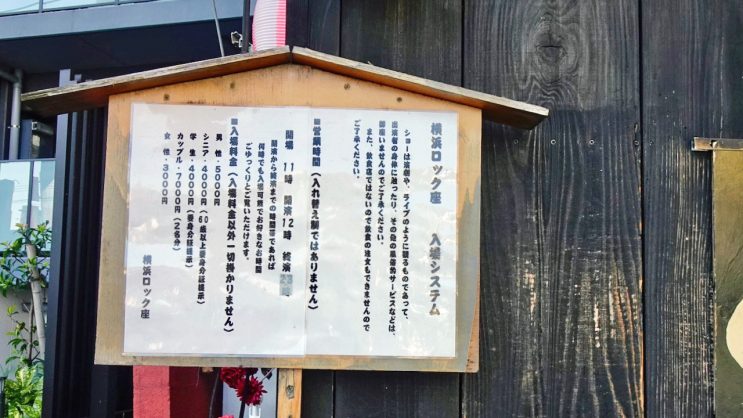 横浜ロック座　入場システム
ショーは演劇や、ライブのように観るものであって、
出演者の身体に触ったり、その他の風俗的サービスなどは、
御座いませんのでご了承ください。
また、飲食店ではないので飲食の注文もできませんので
ご了承ください。
■営業時間（入れ替え制ではありません）
開場 11時 開演12時 終演23時
開演から終演までの時間帯であれば
何時でも入場可能でお好きなお時間
ごゆっくりとご覧いただけます。
■入場料金（入場料金以外一切掛かりません）
男 性・5000円
シニア・4000円（60歳以上要身分証提示）
学 生・4000円（要身分証提示）
カップル・7000円（2名分）
女 性・3000円
横浜ロック座